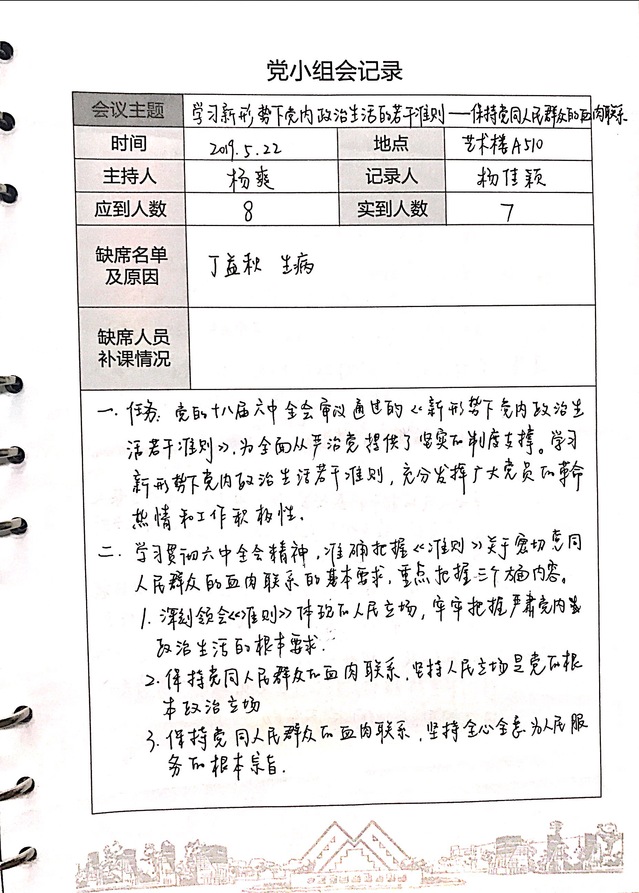 党小组会记录
会议主题 学习新形势下党内政治生活的若干准则——保持党同人民群众的血肉联系
时间 2019.5.22 地点 艺术楼A510
主持人 杨爽 记录人 杨佳颖
应到人数 8 实到人数 7
缺席名单
及原因 丁益秋 生病
缺席人员
补课情况
一. 任务: 党的十八届六中全会审议通过的《新形势下党内政治生
活若干准则》,为全面从严治党提供了坚实的制度支撑。学习
新形势下党内政治生活若干准则,充分发挥广大党员的革命
热情和工作积极性.
二. 学习贯彻六中全会精神,准确把握《准则》关于密切党同
人民群众的血肉联系的基本要求,重点把握三个方面内容。
1. 深刻领会《准则》体现的人民立场,牢牢把握严肃党内
政治生活的根本要求.
2. 保持党同人民群众的血肉联系,坚持人民立场是党的根
本政治立场
3. 保持党同人民群众的血肉联系,坚持全心全意为人民服
务的根本宗旨.